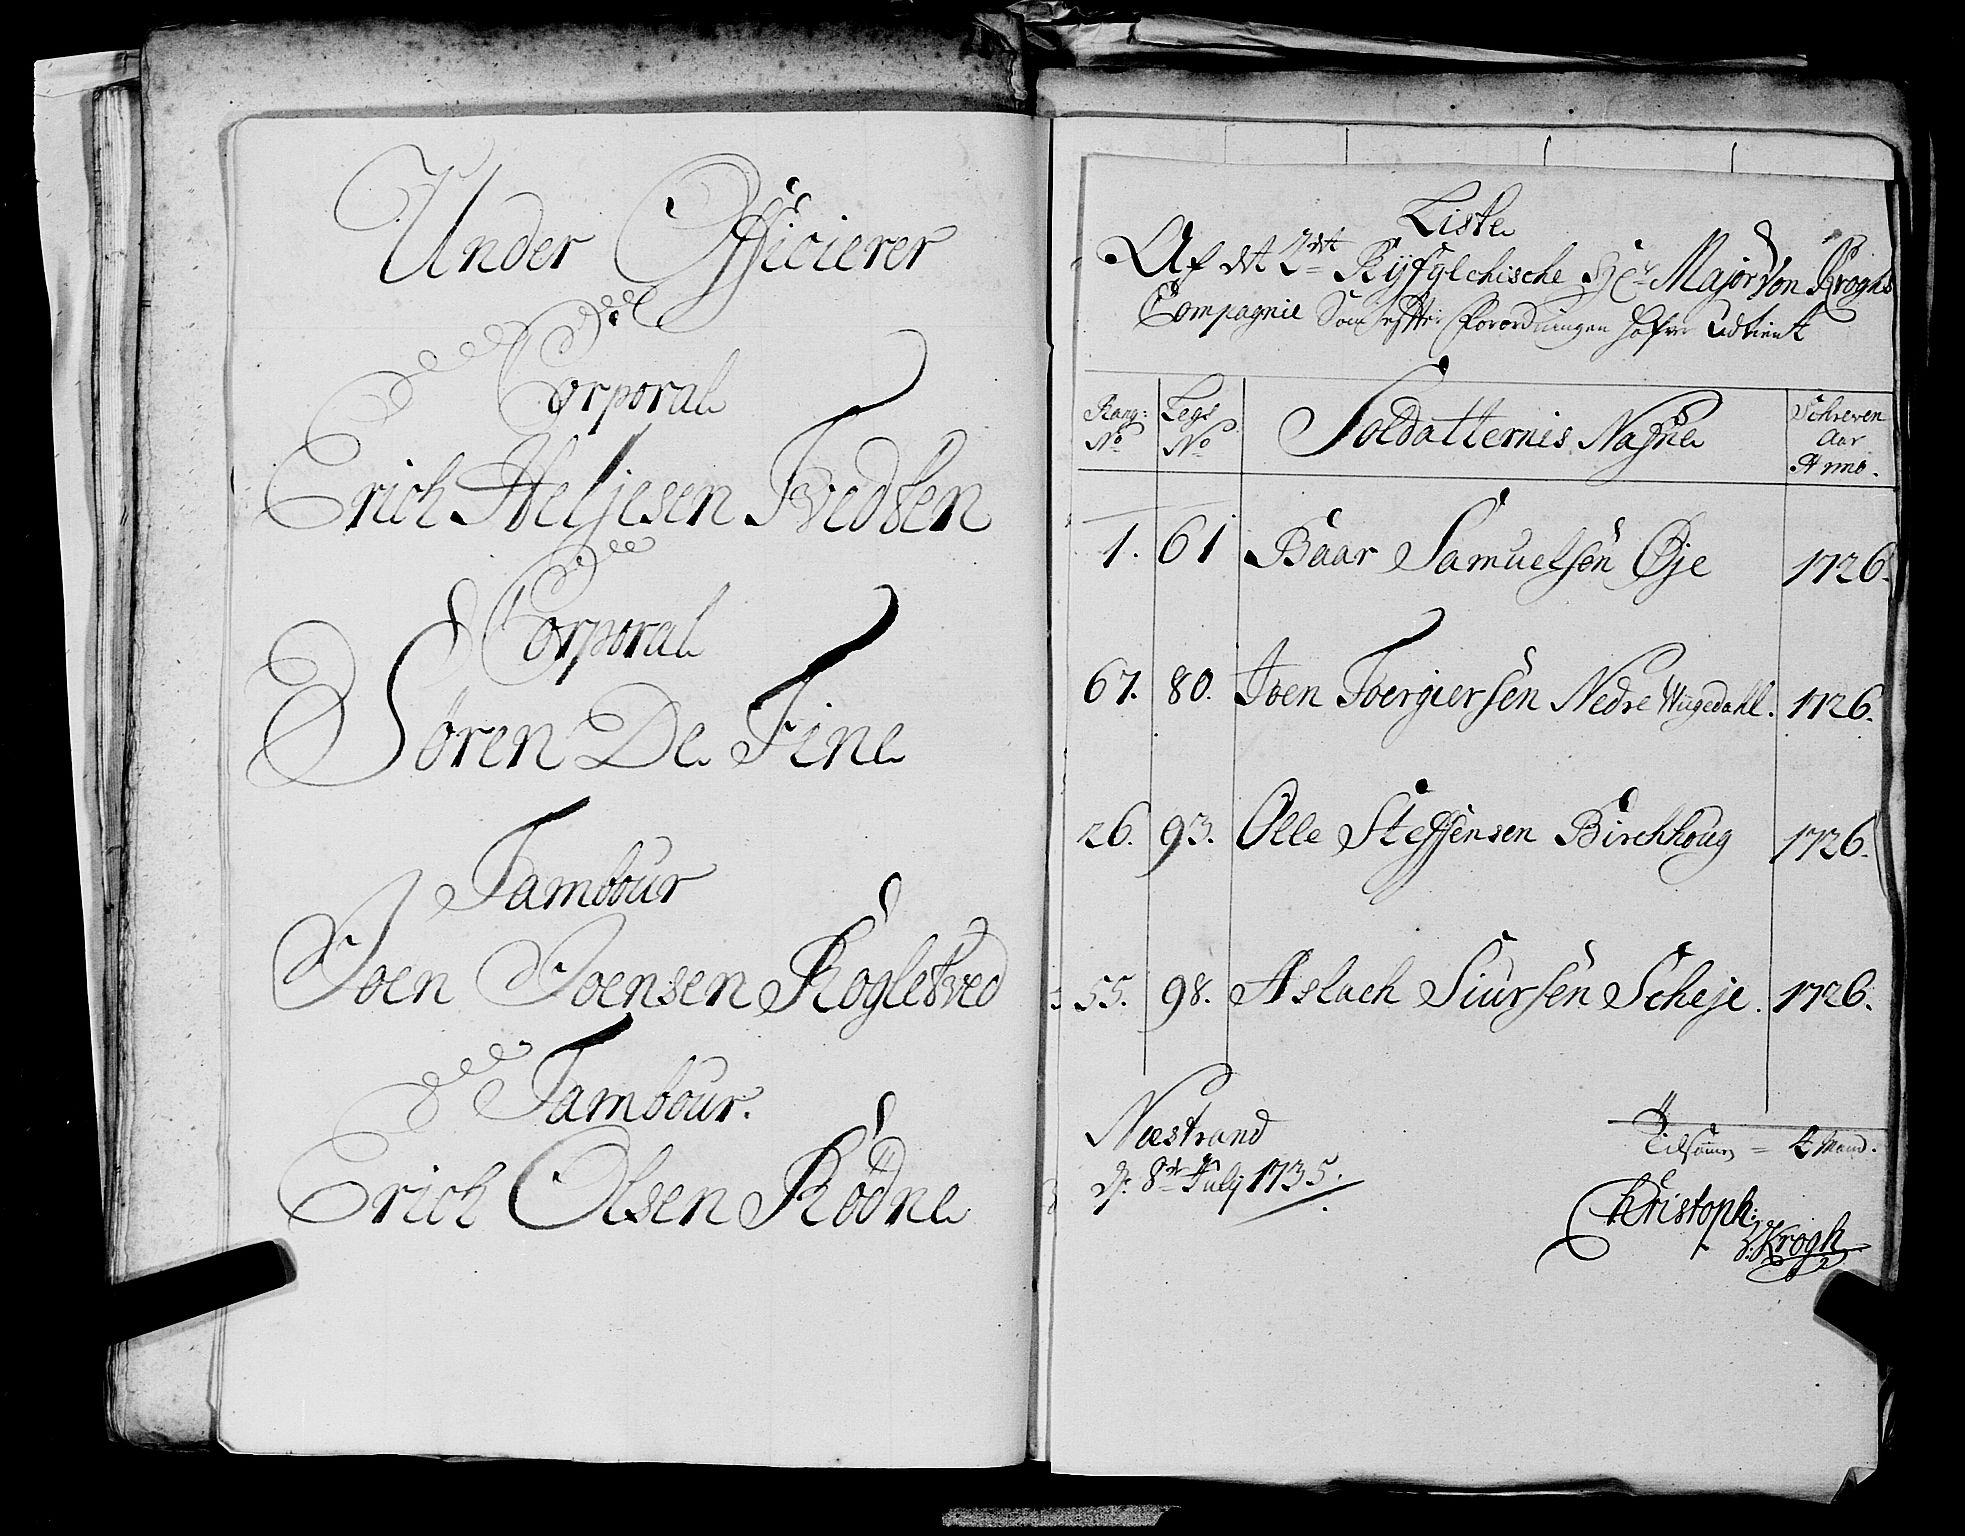 Under Officierer
Corporal
Erich Heljesen Tvedten
Corporal
Sören De Fine
Tambour
Joen Joensen Kogletved
Tambour.
Erich Olsen Rödne
Liste
Af det 2det Ryfylchische Hr Major Von Kroghs
Compagnie Som efter Forordningen hafver Udtient
Rang: No
Legs No
Soldatternis Nafne
Schreven Aar Anno.
1. 61 Baar Samuelsen Øje 1726.
67. 80. Joen Toergiersen Nedre Wiigedahl. 1726.
26. 93. Olle Steffensen Birchhoug 1726.
55. 98. Aslach Siursen Scheje. 1726.
Næstrand
d. 8de July 1735.
Tilsammen = 4 Mand.
Christoph:
V: Krogh